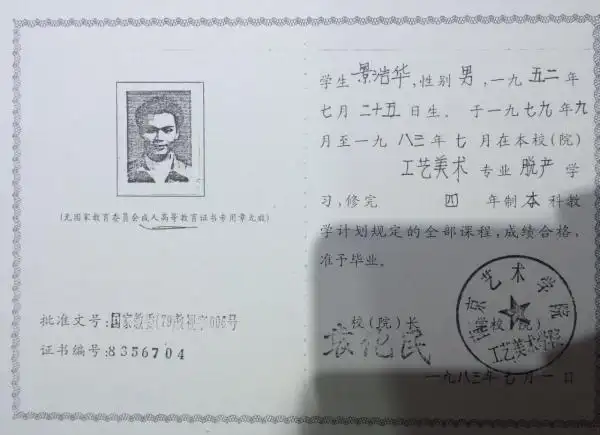 (无国家教育委员会成人高等教育证书专用章无效)
批准文号:国家教委(79)教视字006号
证书编号:8356704
学生景浩华,性别男,一九五二年
七月二十五日生。于一九七九年九
月至一九八三年七月在本校(院)
工艺美术专业脱产学
习,修完四年制本科教
学计划规定的全部课程,成绩合格,
准予毕业。
校(院)长
学校(院)
京艺术学院
工艺美术学院
一九八三年七月一日